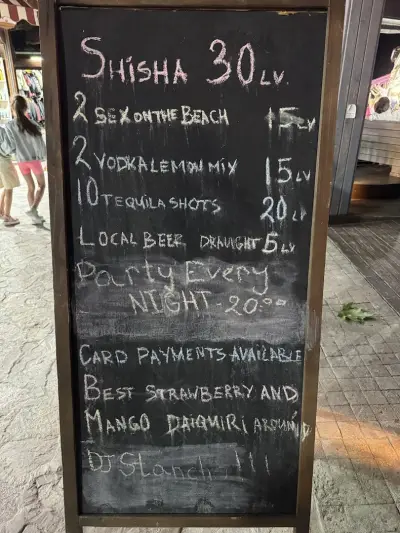 SHISHA 30 LV.
2 SEX ON THE BEACH 15 LV
2 VODKA LEMON MIX 15 LV
10 TEQUILA SHOTS 20 LV
LOCAL BEER DRAUGHT 5 LV
Party Every
NIGHT - 20:00
CARD PAYMENTS AVAILABLE
BEST STRAWBERRY AND
MANGO DAIQMIRI AROUND
DJ !!!